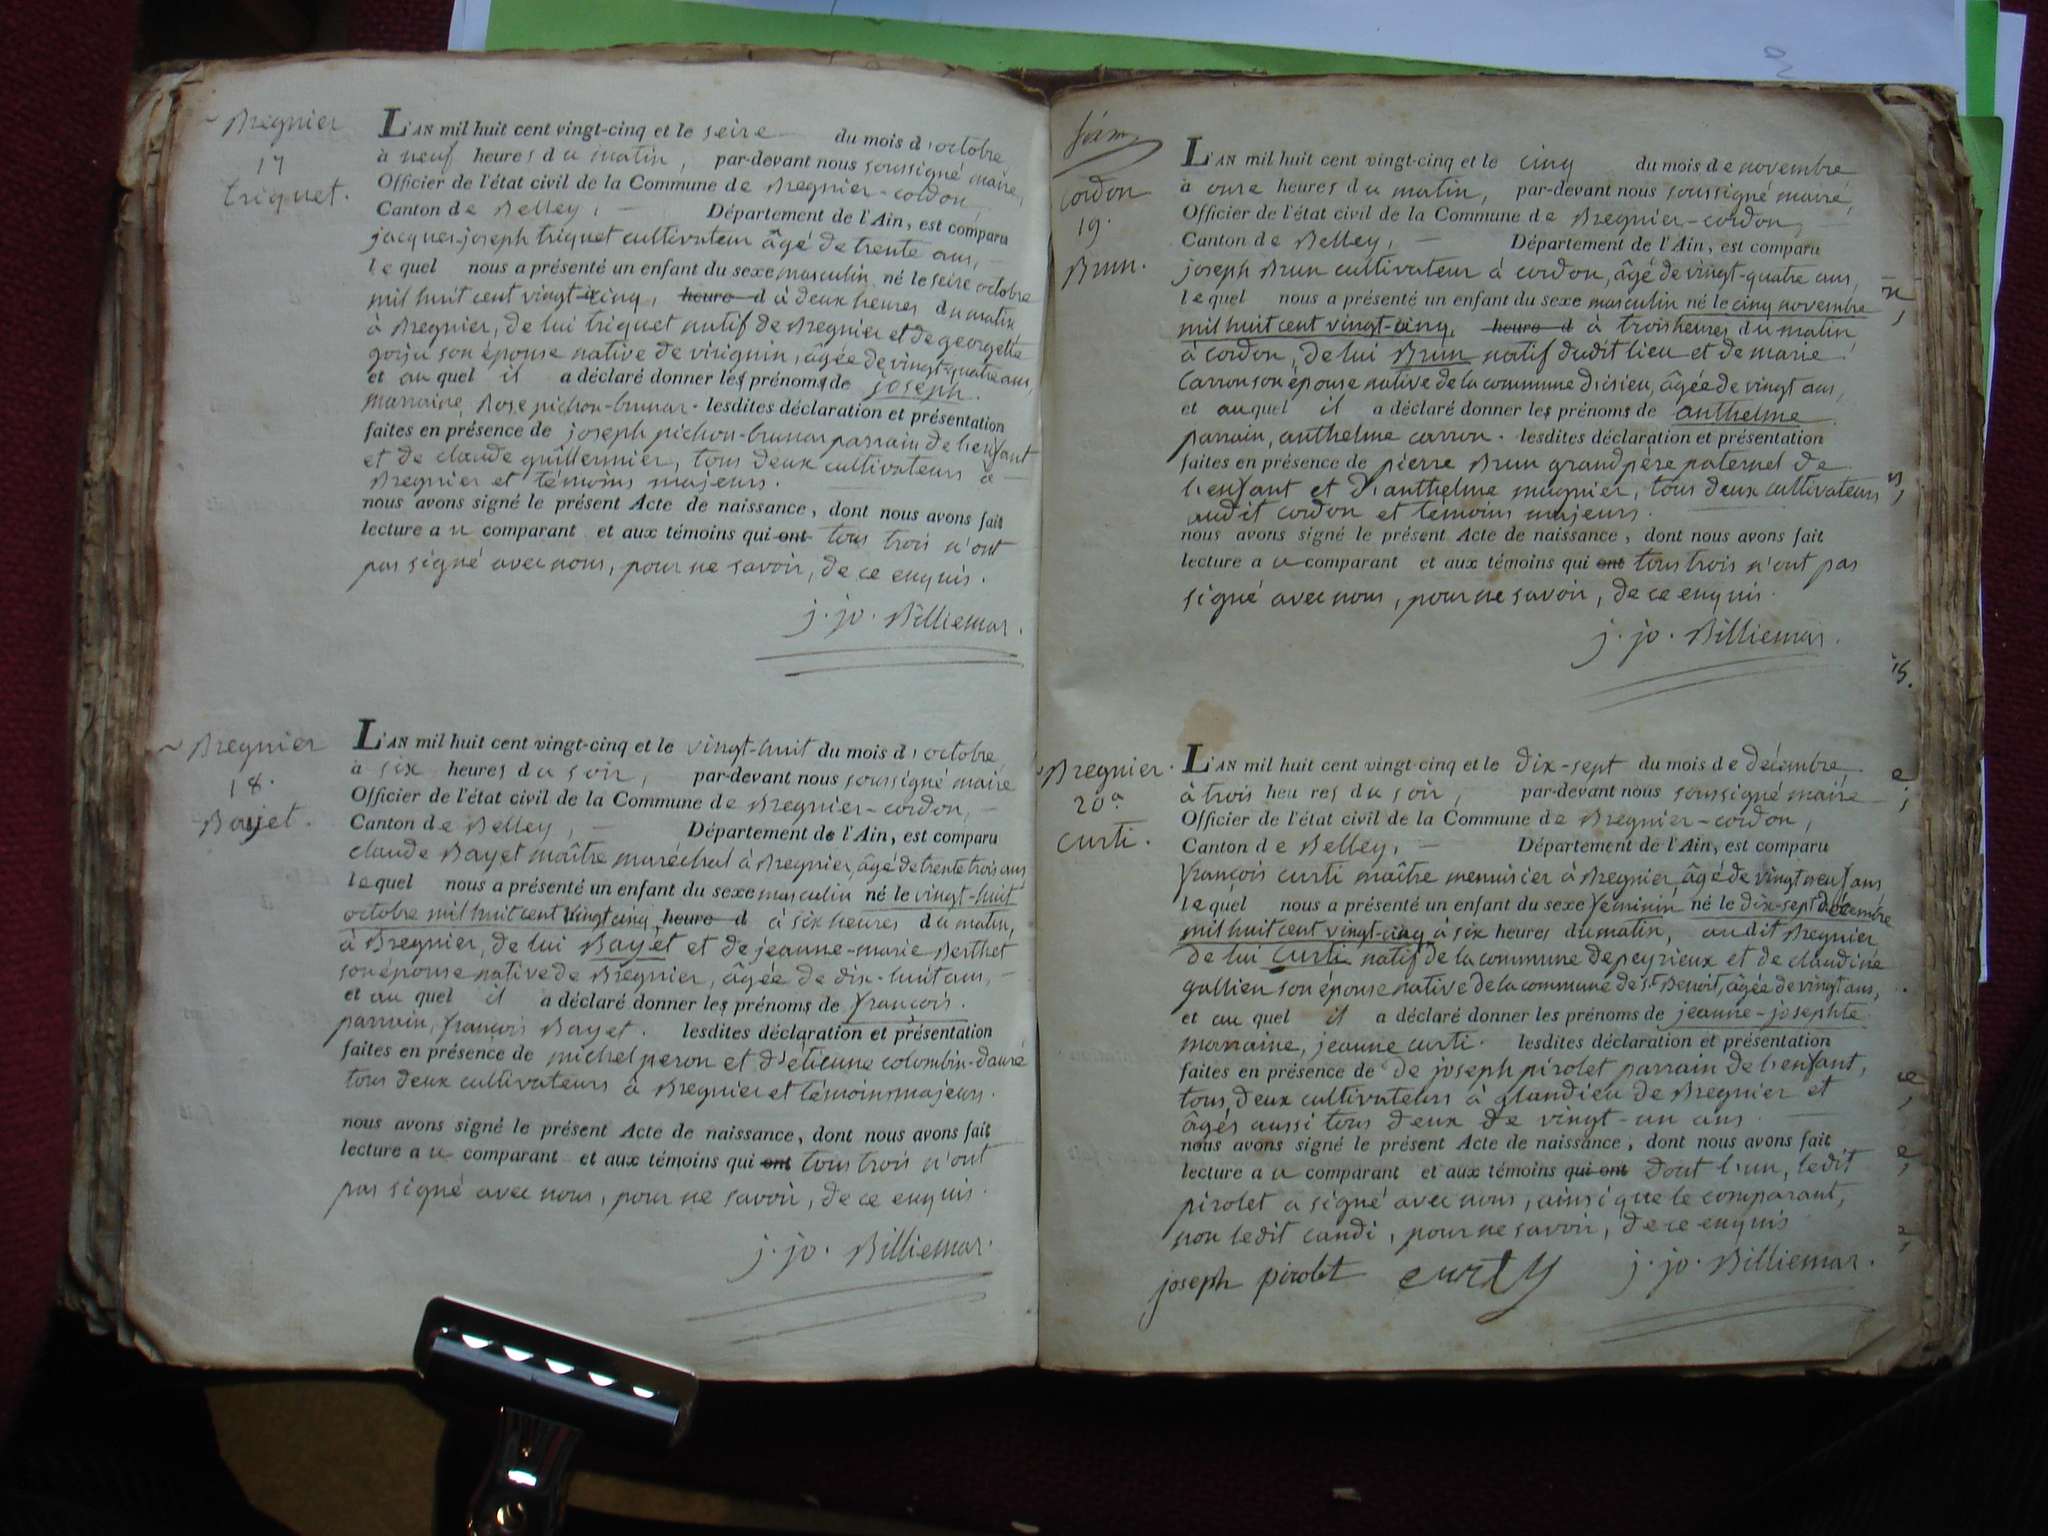 Bregnier
17
triquet.
L'AN mil huit cent vingt-cinq et le seize du mois d'octobre,
à neuf heures du matin, par-devant nous soussigné maire,
Officier de l'état civil de la Commune de Bregnier-cordon,
Canton de Belley, Département de l'Ain, est comparu
jacques-joseph triquet cultivateur âgé de trente ans,
lequel nous a présenté un enfant du sexe masculin né le seize octobre
mil huit cent vingt-cinq, heure d à deux heures du matin
à Bregnier, de lui triquet natif de Bregnier et de georgette
son épouse native de virignin, âgée de vingt-quatre ans,
et auquel il a déclaré donner les prénoms de joseph.
marraine, Rose pichon-brunar. lesdites déclaration et présentation
faites en présence de joseph pichon-brunar parrain de l'enfant
et de claude guillermier, tous deux cultivateurs à
Bregnier et témoins majeurs.
nous avons signé le présent Acte de naissance, dont nous avons fait
lecture au comparant et aux témoins qui ont tous trois n'ont
pas signé avec nous, pour ne savoir, de ce enquis.
j. jo. Billiemar.
Bregnier
18.
Bayet.
L'AN mil huit cent vingt-cinq et le vingt-huit du mois d'octobre,
à six heures du soir, par-devant nous soussigné maire
Officier de l'état civil de la Commune de Bregnier-cordon,
Canton de Belley, Département de l'Ain, est comparu
claude Bayet maître maréchal à Bregnier, âgé de trente trois ans
lequel nous a présenté un enfant du sexe masculin né le vingt-huit
octobre mil huit cent vingt cinq, heure d à six heures du matin,
à Bregnier, de lui Bayet et de jeanne-marie Berthet
son épouse native de Bregnier, âgée de dix-huit ans,
et auquel il a déclaré donner les prénoms de françois.
parrain, françois Bayet. lesdites déclaration et présentation
faites en présence de michel peron et d'étienne colombin-dauré
tous deux cultivateurs à Bregnier et témoins majeurs.
nous avons signé le présent Acte de naissance, dont nous avons fait
lecture au comparant et aux témoins qui ont tous trois n'ont
pas signé avec nous, pour ne savoir, de ce enquis.
j. jo. Billiemar.
cordon
19.
Brun.
L'AN mil huit cent vingt-cinq et le cinq du mois de novembre
à onze heures du matin, par-devant nous soussigné maire,
Officier de l'état civil de la Commune de Bregnier-cordon,
Canton de Belley, Département de l'Ain, est comparu
joseph Brun cultivateur à cordon, âgé de vingt-quatre ans,
lequel nous a présenté un enfant du sexe masculin né le cinq novembre
mil huit cent vingt-cinq, heure d à trois heures du matin
à cordon, de lui Brun natif dudit lieu et de marie
carron son épouse native de la commune d'isieu, âgée de vingt ans,
et auquel il a déclaré donner les prénoms de anthelme.
parrain, anthelme carron. lesdites déclaration et présentation
faites en présence de pierre Brun grand père paternel de
l'enfant et d'anthelme mugnier, tous deux cultivateurs
audit cordon et témoins majeurs.
nous avons signé le présent Acte de naissance, dont nous avons fait
lecture au comparant et aux témoins qui ont tous trois n'ont pas
signé avec nous, pour ne savoir, de ce enquis.
j. jo. Billiemar.
Bregnier.
20a
curti.
L'AN mil huit cent vingt-cinq et le dix-sept du mois de décembre
à trois heures du soir, par-devant nous soussigné maire
Officier de l'état civil de la Commune de Bregnier-cordon,
Canton de Belley, Département de l'Ain, est comparu
françois curti maître menuisier à Bregnier, âgé de vingt neuf ans
lequel nous a présenté un enfant du sexe feminin né le dix-sept décembre
mil huit cent vingt-cinq à six heures du matin, audit Bregnier
de lui curti natif de la commune de peyrieux et de claudine
gallien son épouse native de la commune de St Benoit, âgée de vingt ans,
et auquel il a déclaré donner les prénoms de jeanne-josephte.
marraine, jeanne curti. lesdites déclaration et présentation
faites en présence de de joseph pirolet parrain de l'enfant,
tous deux cultivateurs à glandieu de Bregnier et
âgés aussi tous deux de vingt-un ans
nous avons signé le présent Acte de naissance, dont nous avons fait
lecture au comparant et aux témoins qui ont dont l'un, ledit
pirolet a signé avec nous, ainsi que le comparant,
non ledit candi, pour ne savoir, de ce enquis
joseph pirolet curty j. jo. Billiemar.